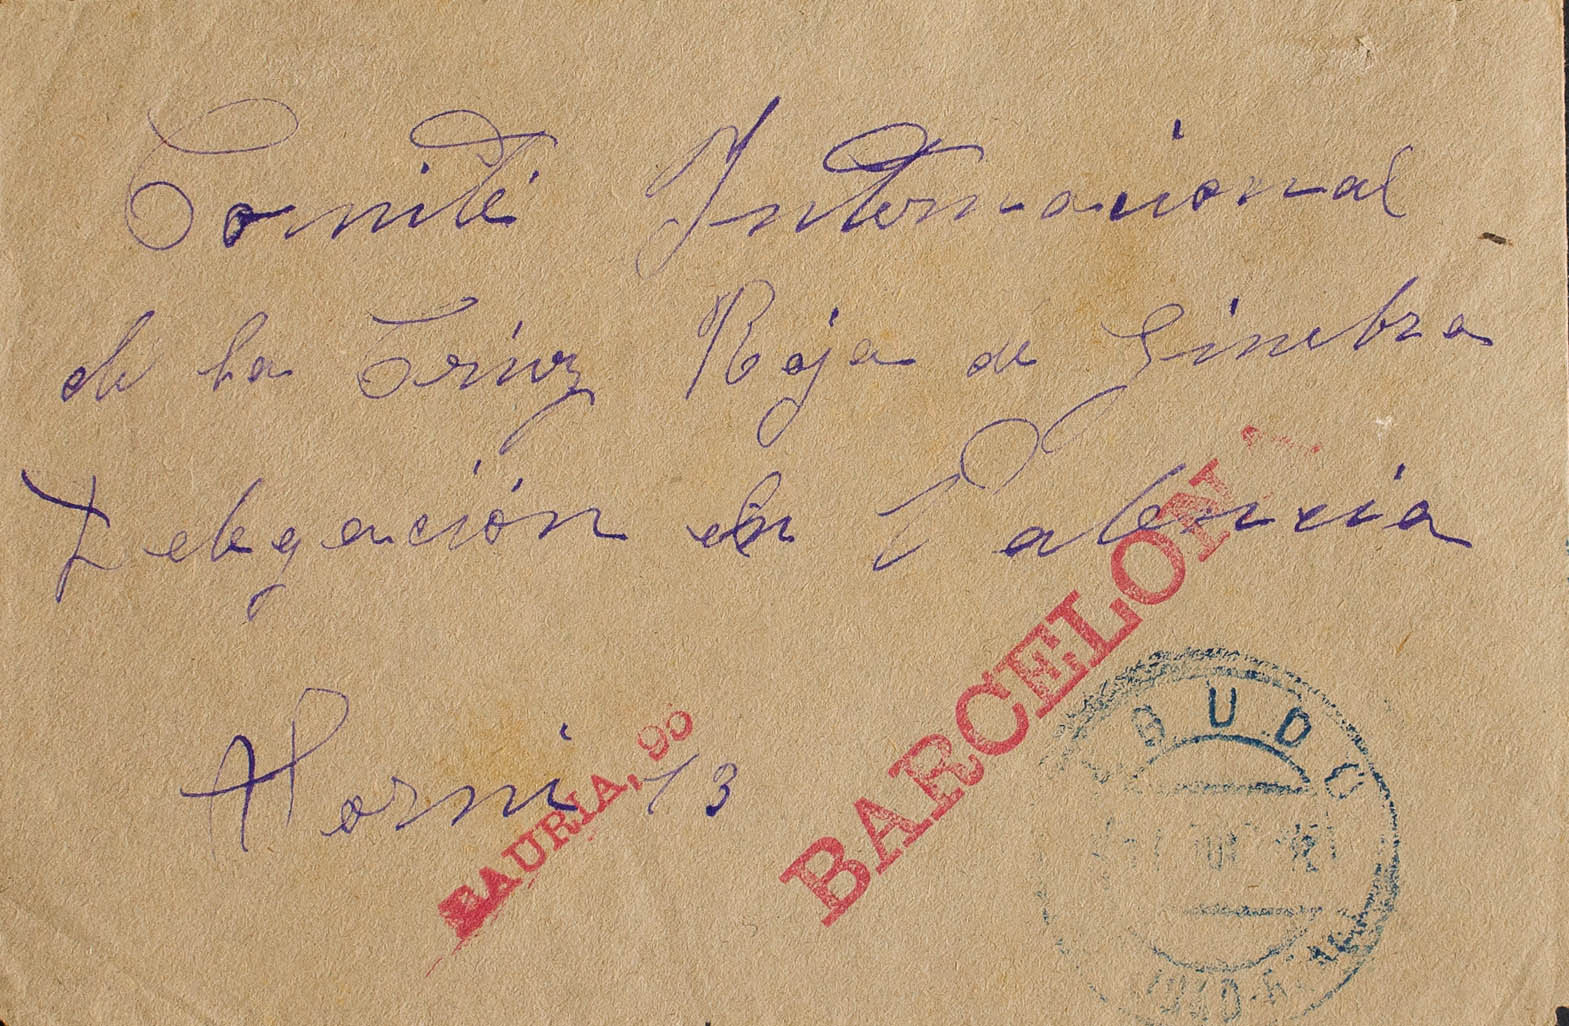 Comité Internacional
de la Crúz Roja de Ginebra
Delegación en Valencia
13
LAURIA, 90
BARCELONA